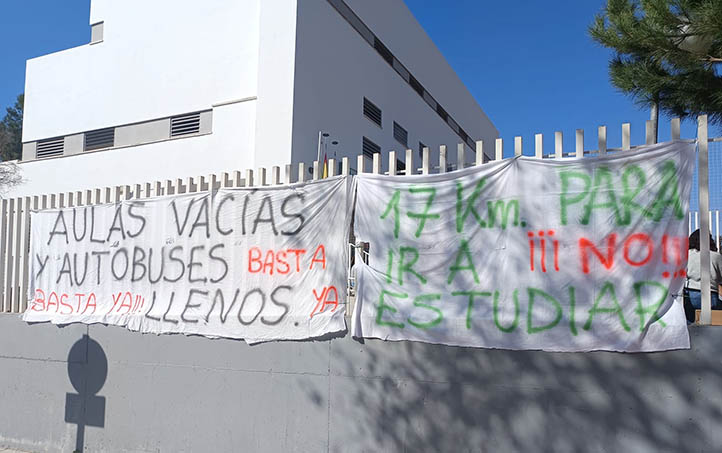 AULAS VACÍAS
Y AUTOBUSES BASTA
BASTA YA!!! LLENOS. YA
17 Km. PARA
IR A ¡¡¡NO!!!
ESTUDIAR